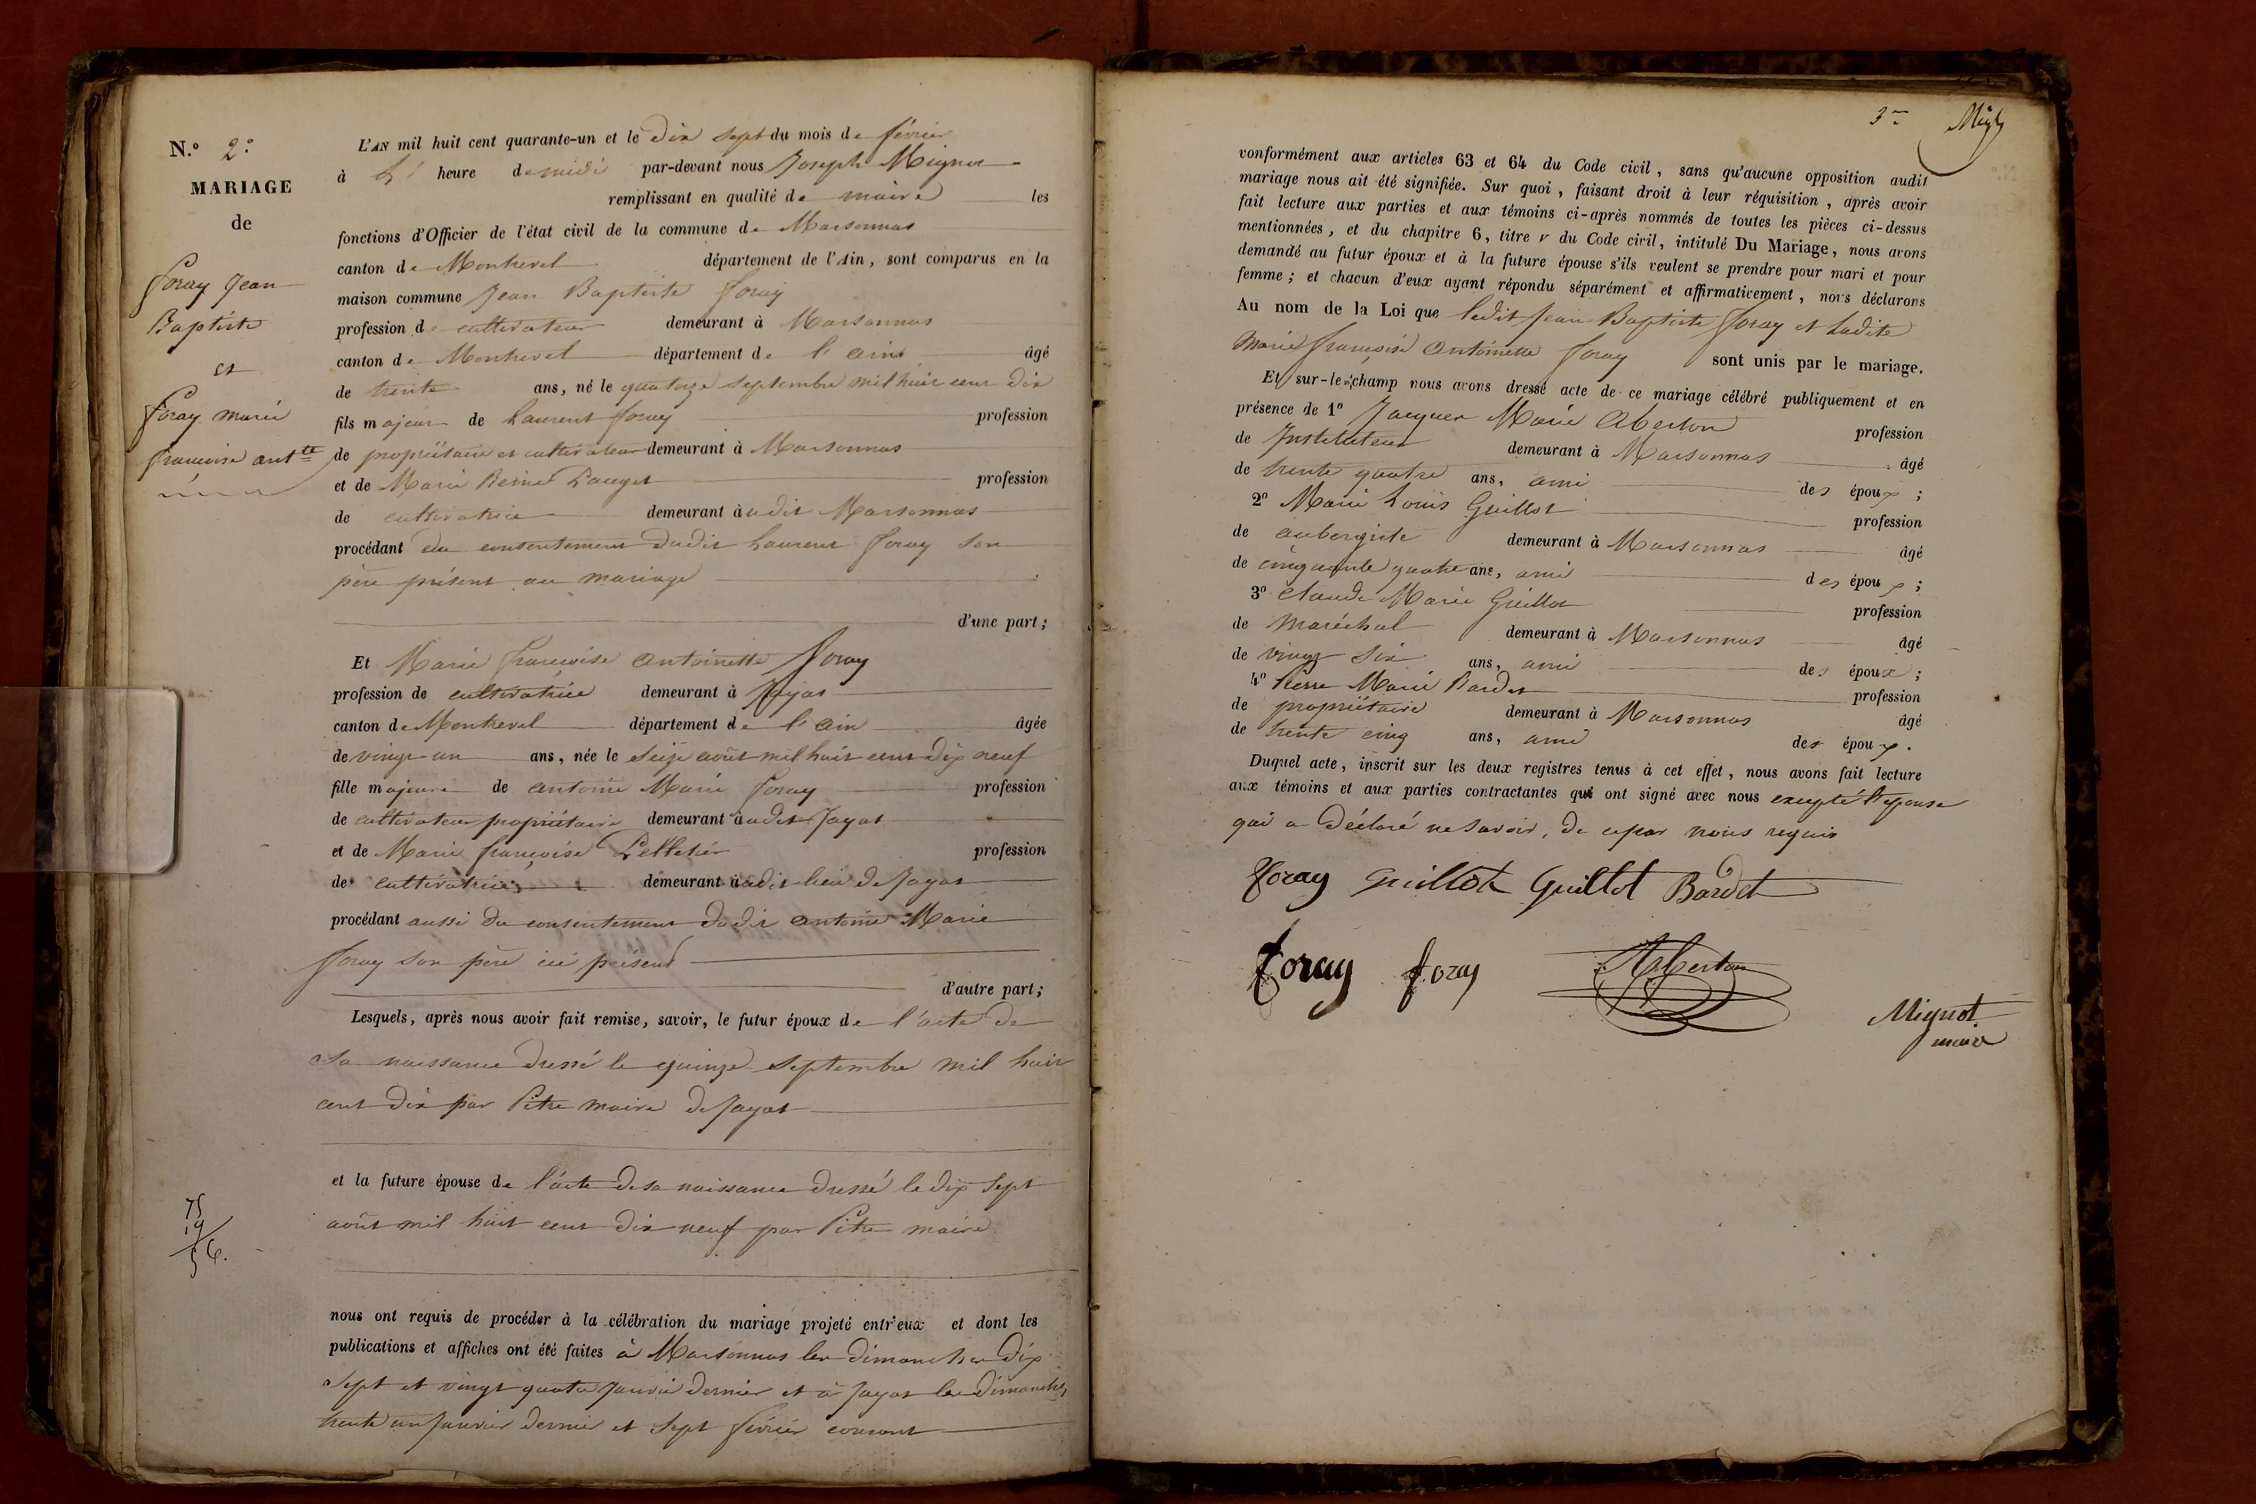 N.° 2°
MARIAGE
de
Foray Jean
Baptiste
et
Foray marie
francoise antte
L'AN mil huit cent quarante-un et le dix sept du mois de février
à L' heure de midi par-devant nous Joseph Mignot
remplissant en qualité de maire les
fonctions d'Officier de l'état civil de la commune de Marsonnas
canton de Montrevel département de l'Ain, sont comparus en la
maison commune Jean Baptiste Foray
profession de cultivateur demeurant à Marsonnas
canton de Montrevel département de l'ain âgé
de trente ans, né le quatorze septembre mil huit cent dix
fils majeur de Laurent foray profession
de propriétaire et cultivateur demeurant à Marsonnas
et de Marie Reine Pauget profession
de cultivatrice demeurant audit Marsonnas
procédant du consentement dudit Laurent Foray son
père présent au mariage
d'une part;
Et Marie françoise antoinette Foray
profession de cultivatrice demeurant à Jayat
canton de Montrevel département de l'ain âgée
de vingt un ans, née le seize août mil huit cent dix neuf
fille majeure de antoine Marie Foray profession
de cultivateur propriétaire demeurant audit Jayat
et de Marie françoise Pelletier profession
de cultivatrice demeurant audit lieu de Jayat
procédant aussi du consentement dudit antoine Marie
Foray son père ici présent
d'autre part;
Lesquels, après nous avoir fait remise, savoir, le futur époux de l'acte de
sa naissance dressé le quinze septembre mil huit
cent dix par Pitre maire de Jayat
et la future épouse de l'acte de sa naissance dressé le dix sept
août mil huit cent dix neuf par Pitre maire
75
19
56.
nous ont requis de procéder à la célébration du mariage projeté entr'eux et dont les
publications et affiches ont été faites à Marsonnas les dimanches dix
sept et vingt quatre janvier dernier et à Jayat les dimanches
trente un janvier dernier et sept février courant
3me
conformément aux articles 63 et 64 du Code civil, sans qu'aucune opposition audit
mariage nous ait été signifiée. Sur quoi, faisant droit à leur réquisition, après avoir
fait lecture aux parties et aux témoins ci-après nommés de toutes les pièces ci-dessus
mentionnées, et du chapitre 6, titre V du Code civil, intitulé Du Mariage, nous avons
demandé au futur époux et à la future épouse s'ils veulent se prendre pour mari et pour
femme; et chacun d'eux ayant répondu séparément et affirmativement, nous déclarons
Au nom de la Loi que ledit Jean Baptiste Foray et Ladite
Marie françoise antoinette Foray sont unis par le mariage.
Et sur-le-champ nous avons dressé acte de ce mariage célébré publiquement et en
présence de 1° Jacques Marie Aberton profession
de Instituteur demeurant à Marsonnas âgé
de trente quatre ans, ami des époux;
2° Marie Louis Guillot profession
de aubergiste demeurant à Marsonnas âgé
de cinquante quatre ans, ami des époux;
3° Claude Marie Guillot profession
de Maréchal demeurant à Marsonnas âgé
de vingt six ans, ami des époux;
4° Pierre Marie Bardet profession
de propriétaire demeurant à Marsonnas âgé
de trente cinq ans, ami des époux.
Duquel acte, inscrit sur les deux registres tenus à cet effet, nous avons fait lecture
aux témoins et aux parties contractantes qui ont signé avec nous excepté l'épouse
qui a déclaré ne savoir, de ce par nous requis
Foray Guillot Guillot Bardet
Foray foray Aberton
Mignot
maire